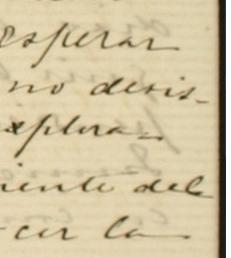 esperar
no desis-
xplora-
iente del
cer la